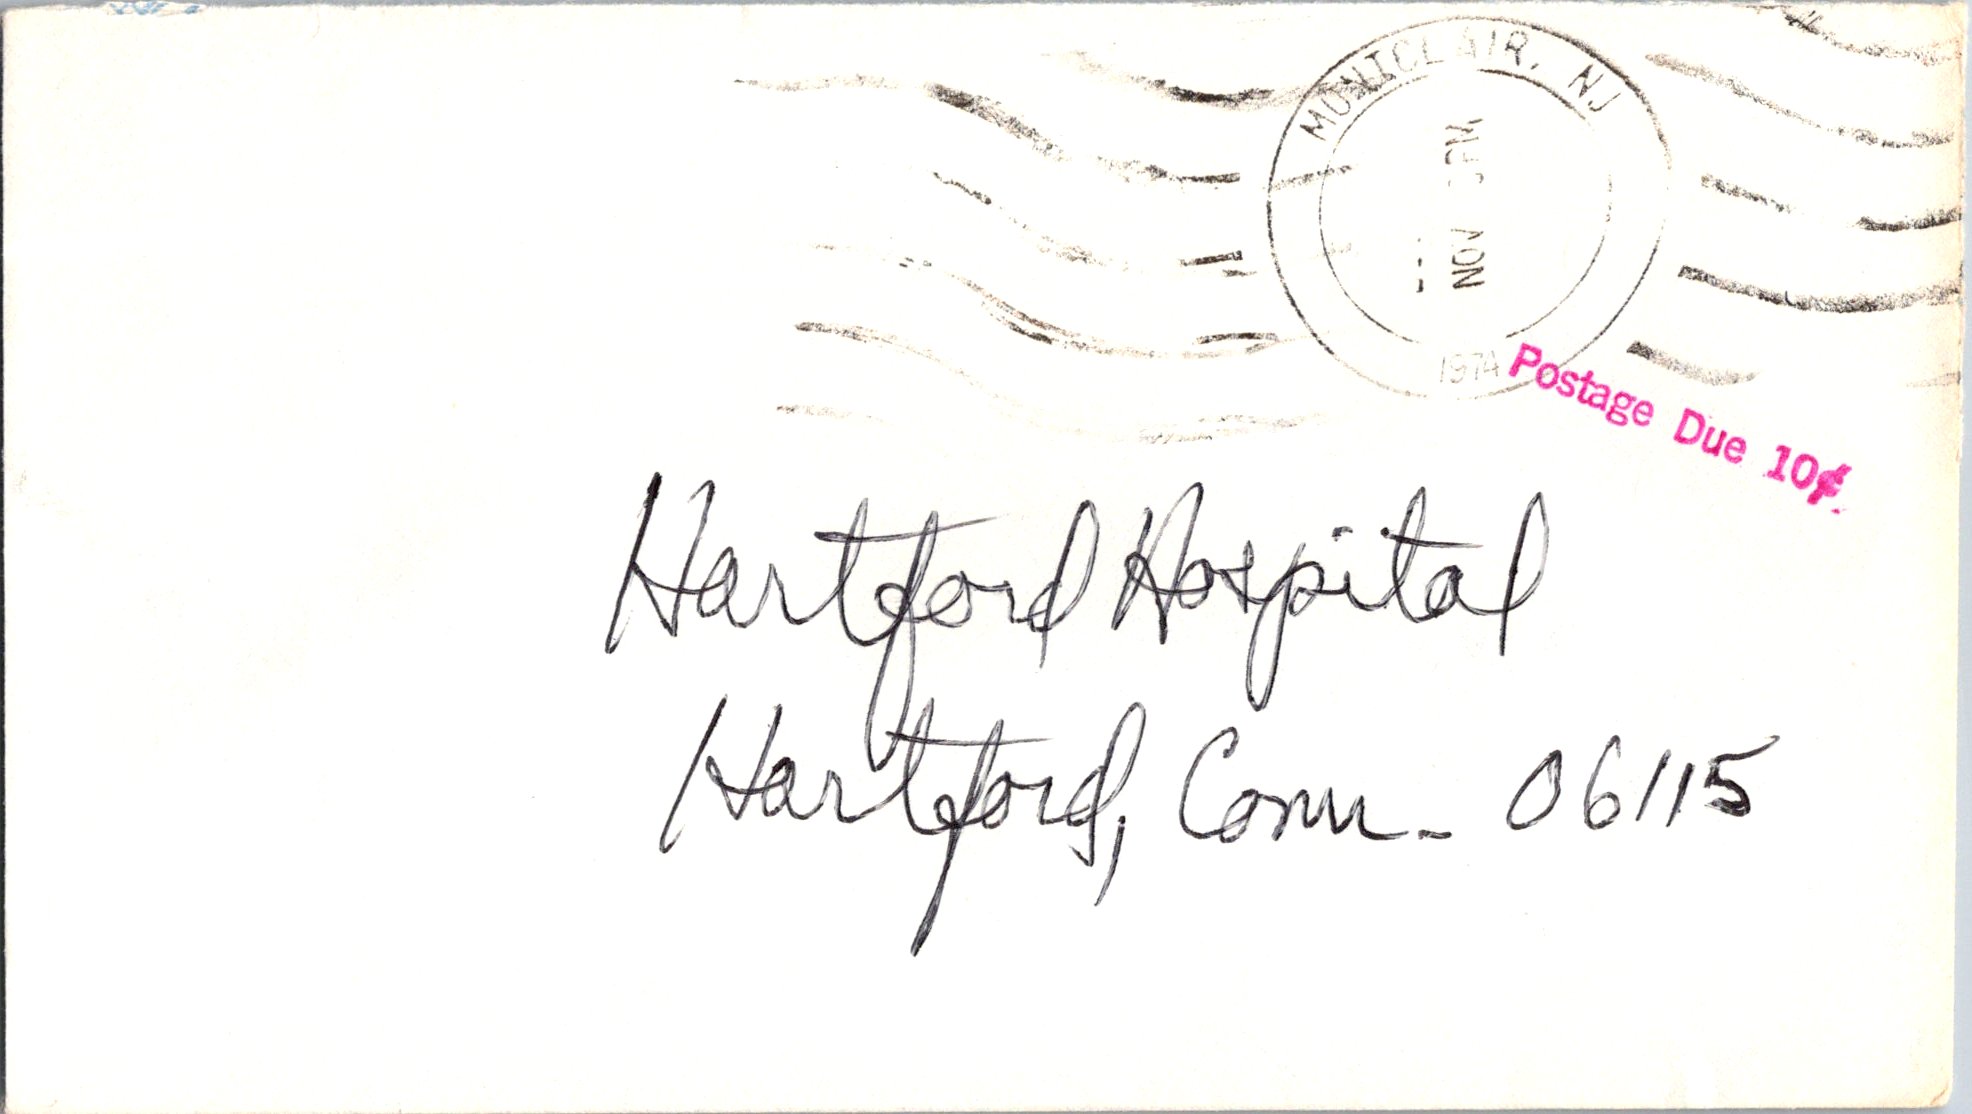 MONTCLAIR, NJ
PM
NOV
1974
Postage Due 10¢
Hartford Hospital
Hartford, Conn. 06115